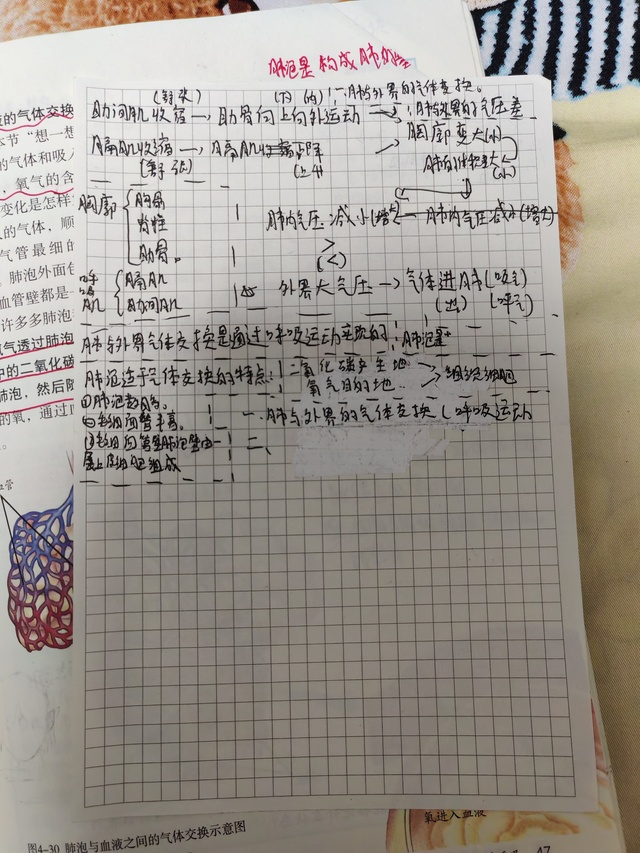 肺泡是构成肺的
(舒张) (下)(内) 一.肺与外界的气体交换。
肋间肌收缩→肋骨向上向外运动→ 1.肺与外界的气压差
膈肌收缩→膈肌 下降 → 胸廓变大(小)
(舒张) (上升) 肺的 体积变大(小)
胸廓 { 胸骨 脊柱 肋骨。
肺内气压减小(增大) ← 肺内气压减小(增大)
> (<)
呼吸肌 { 膈肌 肋间肌
外界大气压→气体进肺(吸气)
(出) (呼气)
肺与外界气体交换是通过呼吸运动实现的
肺泡适于气体交换的特点: 二氧化碳产生地 氧气目的地 → 组织细胞
①肺泡数目多。
②毛细血管丰富。
一.肺与外界的气体交换(呼吸运动
③毛细血管壁肺泡壁由一 二、
层上皮细胞组成
的气体交换
节“想一想
的气体和吸入
,氧气的含
变化是怎样
的气体,顺
气管最细的
。肺泡外面包
血管壁都是一
许多多肺泡
氧气透过肺泡
中的二氧化碳
肺泡,然后随
的氧,通过
血管
氧进入血液
图4-30 肺泡与血液之间的气体交换示意图
47